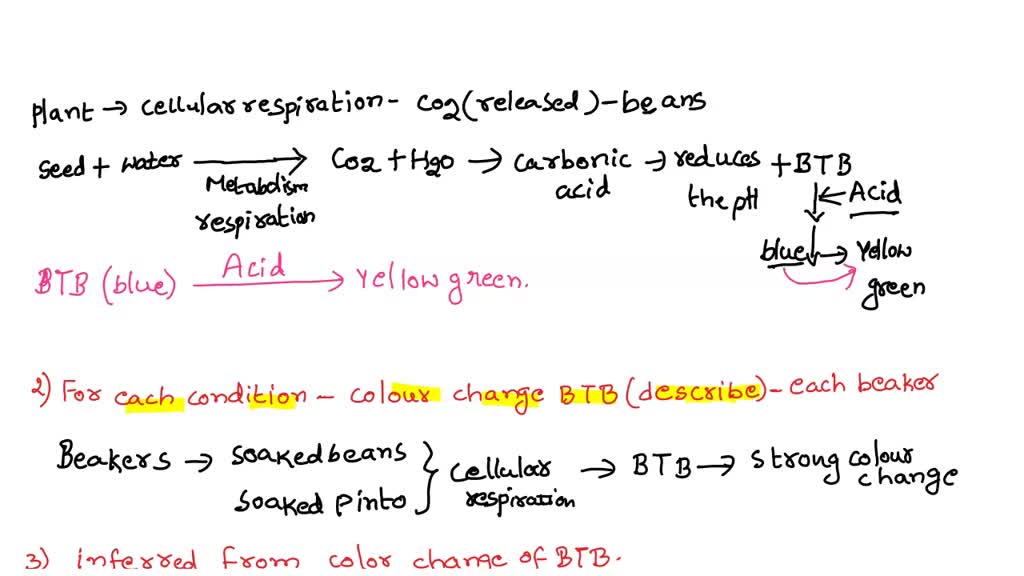 plant → cellular respiration - CO2 (released) - beans
seed + water → CO2 + H2O → carbonic acid → reduces the pH + BTB
Metabolism
respiration
← Acid
blue → Yellow green
BTB (blue) Acid → Yellow green.
2) For each condition - colour change BTB (describe) - each beaker
Beakers → soaked beans
soaked pinto } cellular respiration → BTB → strong colour change
3) inferred from color change of BTB.